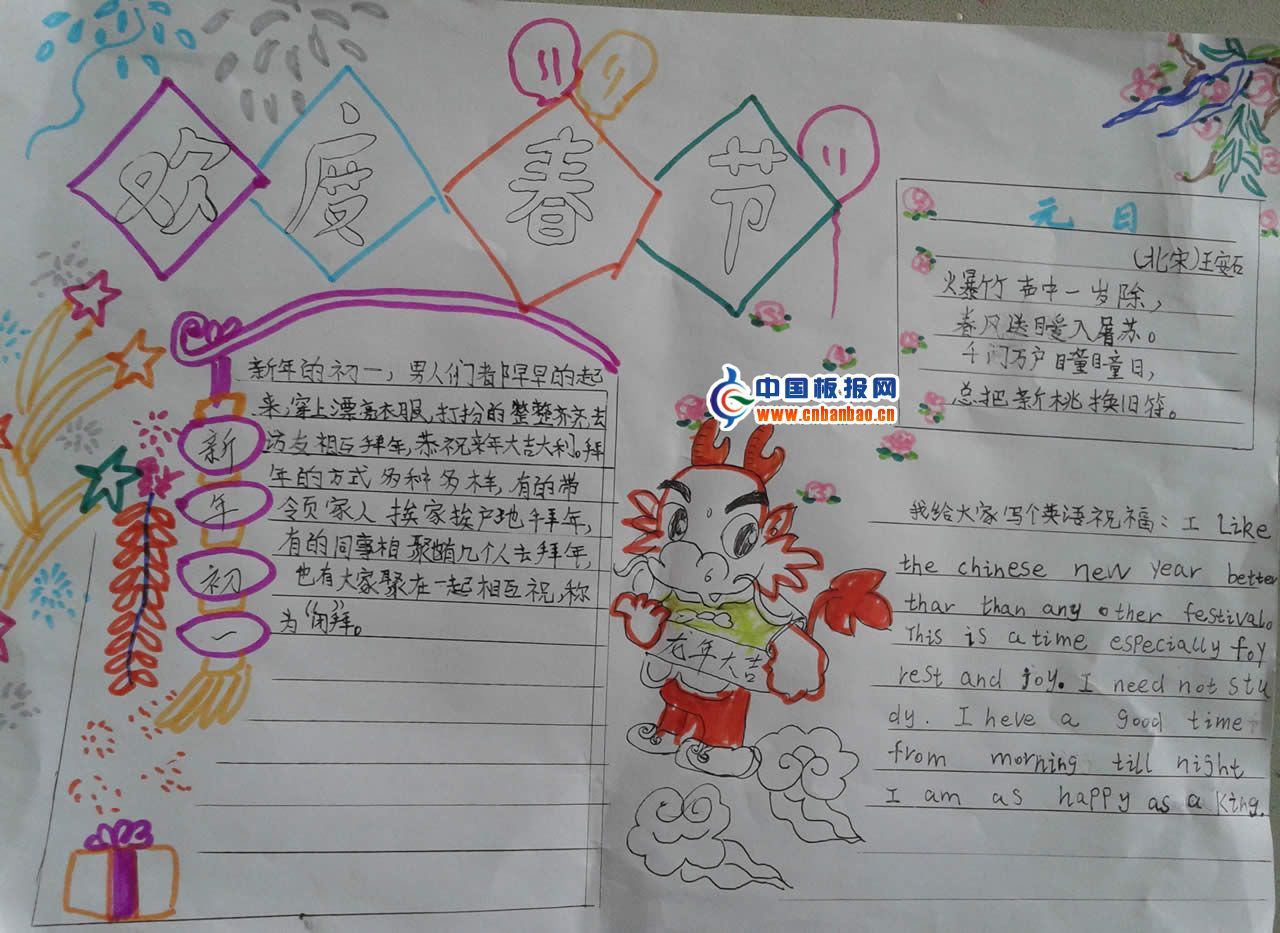 欢度春节
中国板报网
www.cnbanbao.cn
新年初一
新年的初一，男人们都早早的起
来，穿上漂亮衣服，打扮的整整齐齐去
访友相互拜年，恭祝来年大吉大利。拜
年的方式多种多样，有的带
领家人挨家挨户地拜年，
有的同事相聚邀几个人去拜年，
也有大家聚在一起相互祝，称
为“团拜”。
龙年大吉
元日
(北宋)王安石
爆竹声中一岁除，
春风送暖入屠苏。
千门万户瞳瞳日，
总把新桃换旧符。
我给大家写个英语祝福：I Like
the chinese new year better
thar than any other festivalo
This is a time especially foy
rest and joy. I need not stu
dy. I heve a good time
from morning till night
I am as happy as a king.